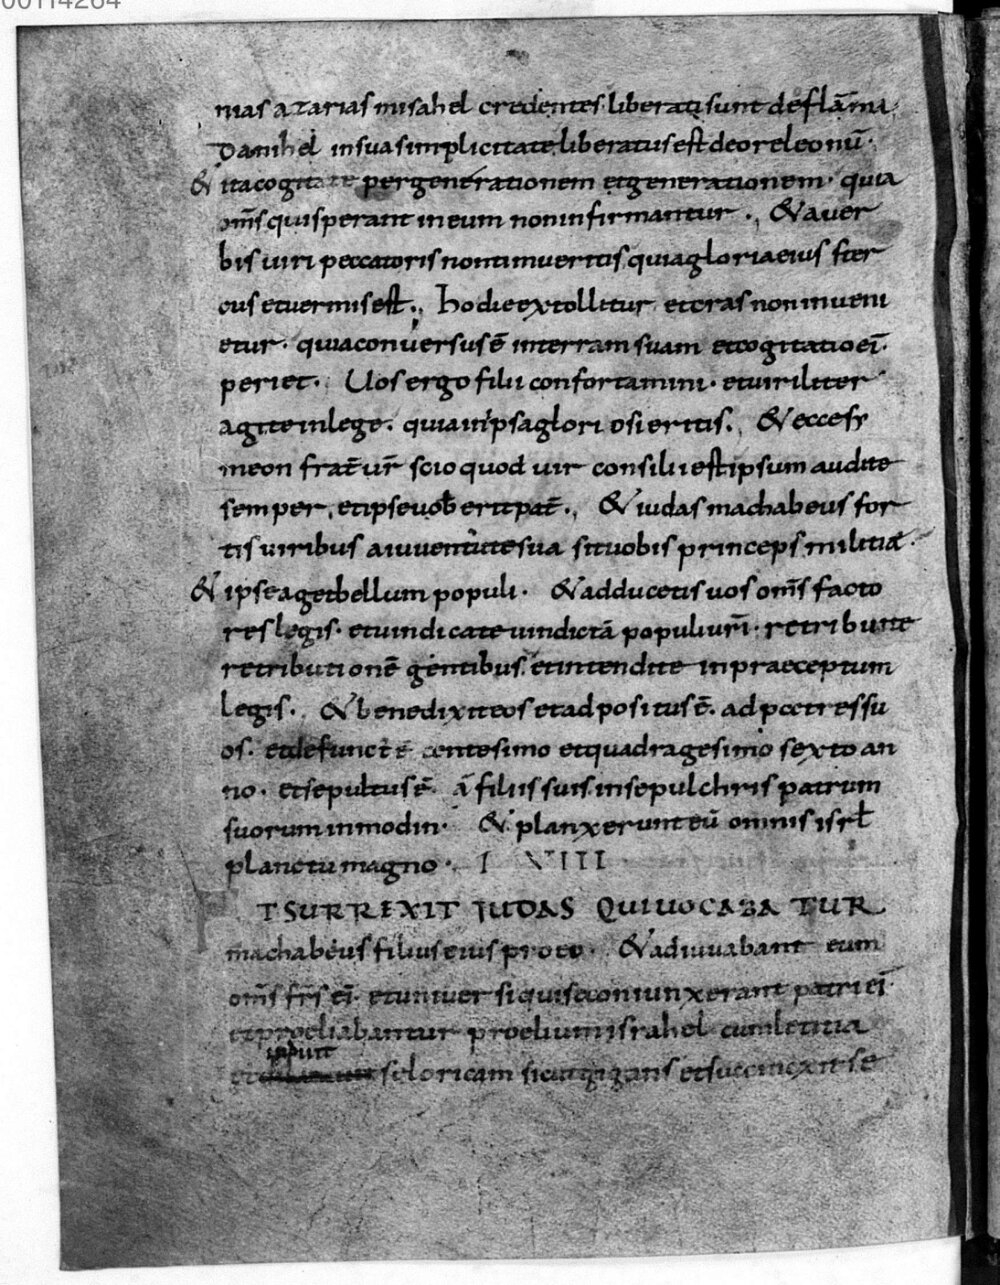 00114264
nias azarias misahel credentes liberati sunt de flāma.
Danihel in sua simplicitate liberatus est de ore leonū.
& ita cogitate per generationem et generationem. quia
om̄s qui sperant in eum non infirmantur. & a ver
bis viri peccatoris non timueritis quia gloria eius ster
cus et vermis est. hodie extollitur et cras non inveni
etur. quia conversus ē in terram suam et cogitatio ei᷒.
periet. Vos ergo filii confortamini. et viriliter
agite in lege. quia in ipsa gloriosi eritis. & ecce sy
meon frat̄ vr̄ scio quod vir consilii est ipsum audite
semper, et ipse vob̄ erit pat̄. & iudas machabeus for
tis viribus a iuventute sua sit vobis princeps militiae.
& ipse aget bellum populi. & adducetis vos om̄s facto
res legis. et vindicate vindictā populi vr̄i. retribuite
retributionē gentibus. et intendite in praeceptum
legis. & benedixit eos et adpositus ē. ad patres su
os. et defunct᷒ ē centesimo et quadragesimo sexto an
no. et sepultus ē. a filiis suis in sepulchris patrum
suorum in modin. & planxerunt eū omnis isrl̄
planctu magno. VIII
T SURREXIT JUDAS QUI VOCABATUR
machabeus filius eius pro eo. & adiuvabant eum
om̄s fr̄s ei᷒. et universi qui se coniunxerant patri ei᷒
et proeliabantur proelium israhel cum letitia
et se loricam sicut gigans et succinxit se